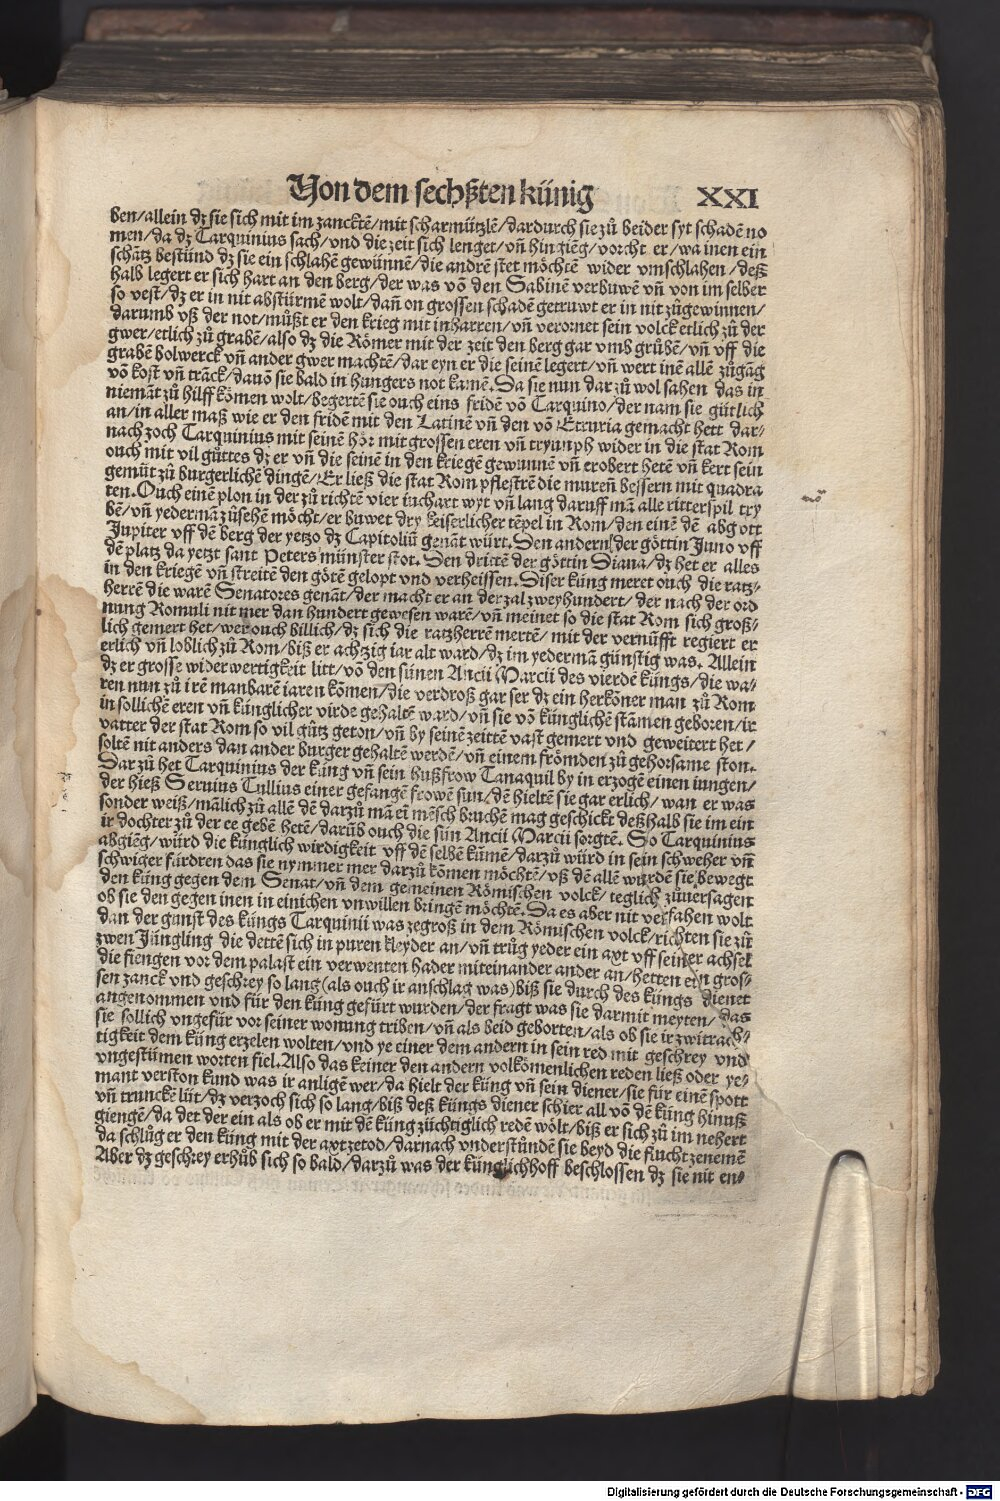 Von dem sechßten künig XXI
ben/allein dz sie sich mit im zancktē/mit scharmützlē/dardurch sie zů beider syt schadē no
men/da dz Tarquinius sach/vnd die zeit sich lenget/vñ hin gieg/vorcht er/wa inen ein
schātz bestünd dz sie ein schlahē gewünnē/die andrē stet möchtē wider vmschlahen/deß
halb legert er sich hart an den berg/der was võ den Sabinē verbuwē vñ von im selber
so vest/dz er in nit abstürmē wolt/dañ on grossen schadē getruwt er in nit zůgewinnen/
darumb vß der not/můßt er den krieg mit inharren/vñ verornet sein volck etlich zů der
gwer/etlich zů grabē/also dz die Römer mit der zeit den berg gar vmb grůbē/vñ vff die
grabē bolwerck vñ ander gwer machtē/dar eyn er die seinē legert/vñ wert inē allē zůgāg
võ kost vñ trāck/dauõ sie bald in hungers not kamē. Da sie nun dar zů wol sahen das in
niemāt zů hilff kõmen wolt/begertē sie ouch eins fridē võ Tarquino/der nam sie gütlich
an/in aller maß wie er den fridē mit den Latinē vñ den võ Etruria gemacht hett dar⸗
nach zoch Tarquinius mit seinē hör mit grossen eren vñ tryumph wider in die stat Rom
ouch mit vil gůttes dz er vñ die seinē in den kriegē gewunnē vñ erobert hetē vñ kert sein
gemüt zů burgerlichē dingē/Er ließ die stat Rom pflestrē die mureñ bessern mit quadra
ten. Ouch einē plon in der zů richtē vier iuchart wyt vñ lang daruff mā alle ritterspil try
bē/vñ yedermā zůsehē möcht/er buwet dry keiserlicher tēpel in Rom/den einē dē abgott
Jupiter vff dē berg der yetzo dz Capitoliū genāt würt. Den andern der göttin Juno vff
dē platz da yetzt sant Peters münster stot. Den drittē der göttin Diana/dz het er alles
in den kriegē vñ streitē den götē gelopt vnd verheissen. Diser küng meret ouch die ratz⸗
herrē die warē Senatores genāt/der macht er an der zal zweyhundert/der nach der ord
nung Romuli nit mer dan hundert gewesen warē/vñ meinet so die stat Rom sich groß⸗
lich gemert het/wer ouch billich/dz sich die ratzherrē mertē/mit der vernůfft regiert er
erlich vñ loblich zů Rom/biß er achzig iar alt ward/dz im yedermā günstig was. Allein
dz er grosse widerwertigkeit litt/võ den sünen Ancii Marcii des vierdē küngs/die wa⸗
ren nun zů irē manbarē iaren kõmen/die verdroß gar ser dz ein herkõner man zů Rom
in sollichē eren vñ künglicher virde gehaltē ward/vñ sie võ künglichē stāmen geboren/ir
vatter der stat Rom so vil gůtz geton/vñ by seinē zeittē vast gemert vnd geweitert het/
soltē nit anders dan ander burger gehaltē werdē/vñ einem frömden zů gehorsame ston.
Dar zů het Tarquinius der küng vñ sein hußfrow Tanaquil by in erzogē einen iungen/
der hieß Seruius Tullius einer gefangē frowē sun/dē hieltē sie gar erlich/wan er was
sonder weiß/mālich zů allē dē darzů mā eī mēsch bruchē mag geschickt deßhalb sie im ein
ir dochter zů der ee gebē hetē/darūb ouch die sün Ancii Marcii sorgtē. So Tarquinius
abgiēg/würd die künglich wirdigkeit vff dē selbē kūmē/darzů würd in sein schweher vñ
schwiger fürdren das sie nymmer mer darzů kõmen möchtē/vß dē allē wurdē sie bewegt
den küng gegen dem Senat/vñ dem gemeinen Römischen volck/teglich zůuersagen
ob sie den gegen inen in einichen vnwillen bringē möchtē. Da es aber nit verfahen wolt
dan der gunst des küngs Tarquinii was zegroß in dem Römischen volck/richten sie zů
zwen Jüngling die dettē sich in puren kleyder an/vñ trůg yeder ein axt vff seiner achsel
die fiengen vor dem palast ein verwenten hader miteinander ander an/hetten ein gros⸗
sen zanck vnd geschrey so lang(als ouch ir anschlag was)biß sie durch des küngs dienet
angenommen vnd für den küng gefürt wurden/der fragt was sie darmit meyten/das
sie sollich vngefür vor seiner wonung triben/vñ als beid geborten/als ob sie ir zwitrach⸗
tigkeit dem küng erzelen wolten/vnd ye einer dem andern in sein red mit geschrey vnd
vngestümen worten fiel. Also das keiner den andern volkõmenlichen reden ließ oder ye⸗
mant verston kund was ir anligē wer/da hielt der küng vñ sein diener/sie für einē spott
vñ trunckē lüt/dz verzoch sich so lang/biß deß küngs diener schier all võ dē küng hinuß
giengē/da det der ein als ob er mit dē küng züchtiglich redē wölt/biß er sich zů im nehert
da schlůg er den küng mit der axt zetod/darnach vnderstůndē sie beyd die flucht zenemē
Aber dz geschrey erhůb sich so bald/darzů was der künglichhoff beschlossen dz sie nit en⸗
Digitalisierung gefördert durch die Deutsche Forschungsgemeinschaft - DFG